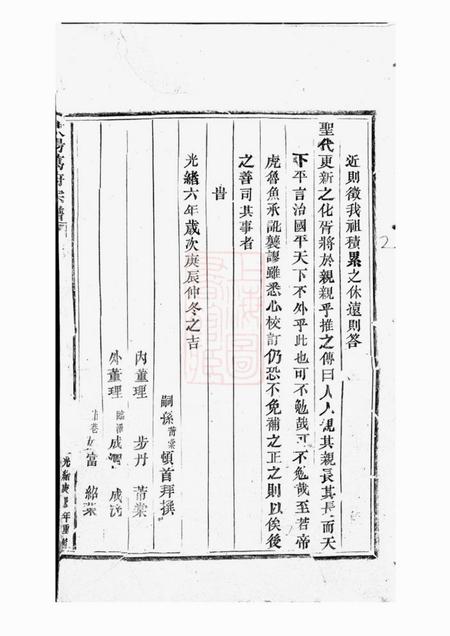 近則徵我祖積累之休遠則答
聖代更新之化胥將於親親乎推之傳曰人人親其親長其長而天
下平言治國平天下不外乎此也可不勉哉可不勉哉至若帝
虎魯魚承訛襲謬雖悉心校訂仍恐不免補之正之則以俟後
之善司其事者
旹
光緒六年歲次庚辰仲冬之吉
嗣孫莆棠頓首拜撰
內董理 步丹 莆棠
外董理 成 成
富 紹棠
萬府宗譜
光緒庚年重
上海圖
2